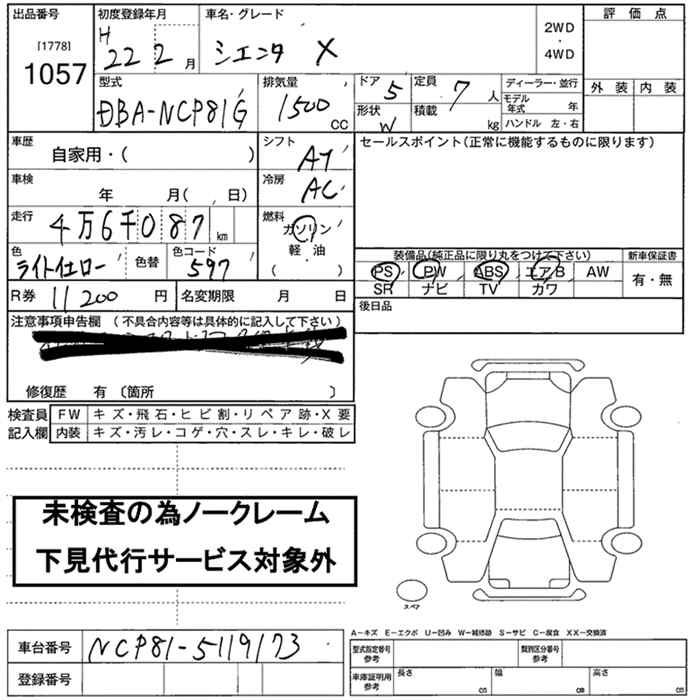 出品番号 初度登録年月 車名・グレード 評価点
[1778] H 2WD
1057 22 2 月 シエンタ X ・
4WD
型式 排気量 ドア 5 定員 7 人 ディーラー・並行 外装 内装
DBA-NCP81G 1500 CC 形状 W 積載 kg モデル年式 年
ハンドル 左・右
車歴 自家用・( ) シフト AT セールスポイント(正常に機能するものに限ります)
車検 年 月( 、 日) 冷房 AC
走行 4万6千087 km 燃料 ガソリン
色 ライトイエロー 色替 色コード 597 軽・油
( ・ )
装備品(純品に限り丸をつけて下さい) 新車保証書
PS PW ABS エアB AW 有・無
SR ナビ TV カワ
R券 11200 円 名変期限 月 日 後日品
注意事項申告欄 (不具合内容等は具体的に記入して下さい)
修復歴 有 〔箇所 〕
検査員 FW キズ・飛石・ヒビ割・リペア跡・X要
記入欄 内装 キズ・汚レ・コゲ・穴・スレ・キレ・破レ
未検査の為ノークレーム
下見代行サービス対象外
スペア
A－キズ E－エクボ U－凹み W－補修跡 S－サビ C－腐食 XX－交換済
車台番号 NCP81-5119173 型式指定番号 参考 類別区分番号 参考
登録番号 車庫証明用 参考 長さ cm 幅 cm 高さ cm